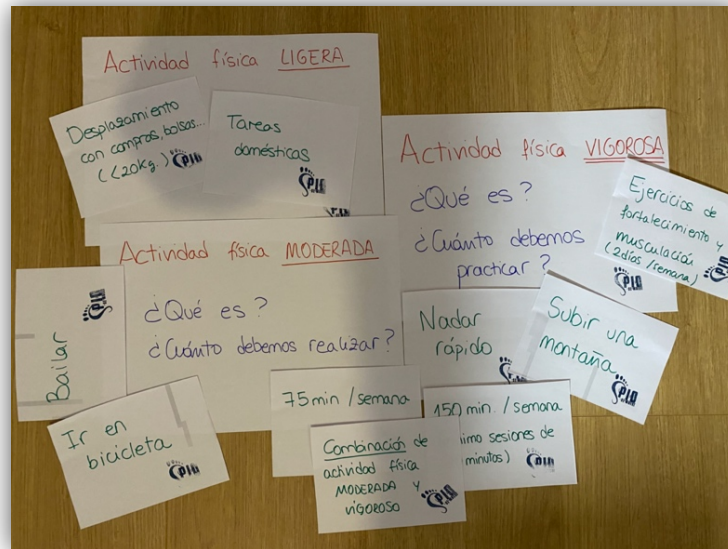 Actividad física LIGERA
Desplazamiento
con compras, bolsas...
(<20Kg.)
Tareas
domésticas
Actividad física VIGOROSA
¿Qué es?
¿Cuánto debemos
practicar?
Ejercicios de
fortalecimiento y
musculación
(2días/semana)
Actividad física MODERADA
¿Qué es?
¿Cuánto debemos realizar?
Bailar
Ir en
bicicleta
Nadar
rápido
Subir una
montaña
75min/semana
150 min. / semana
imo sesiones de
minutos)
Combinación de
actividad física
MODERADA Y
VIGOROSO